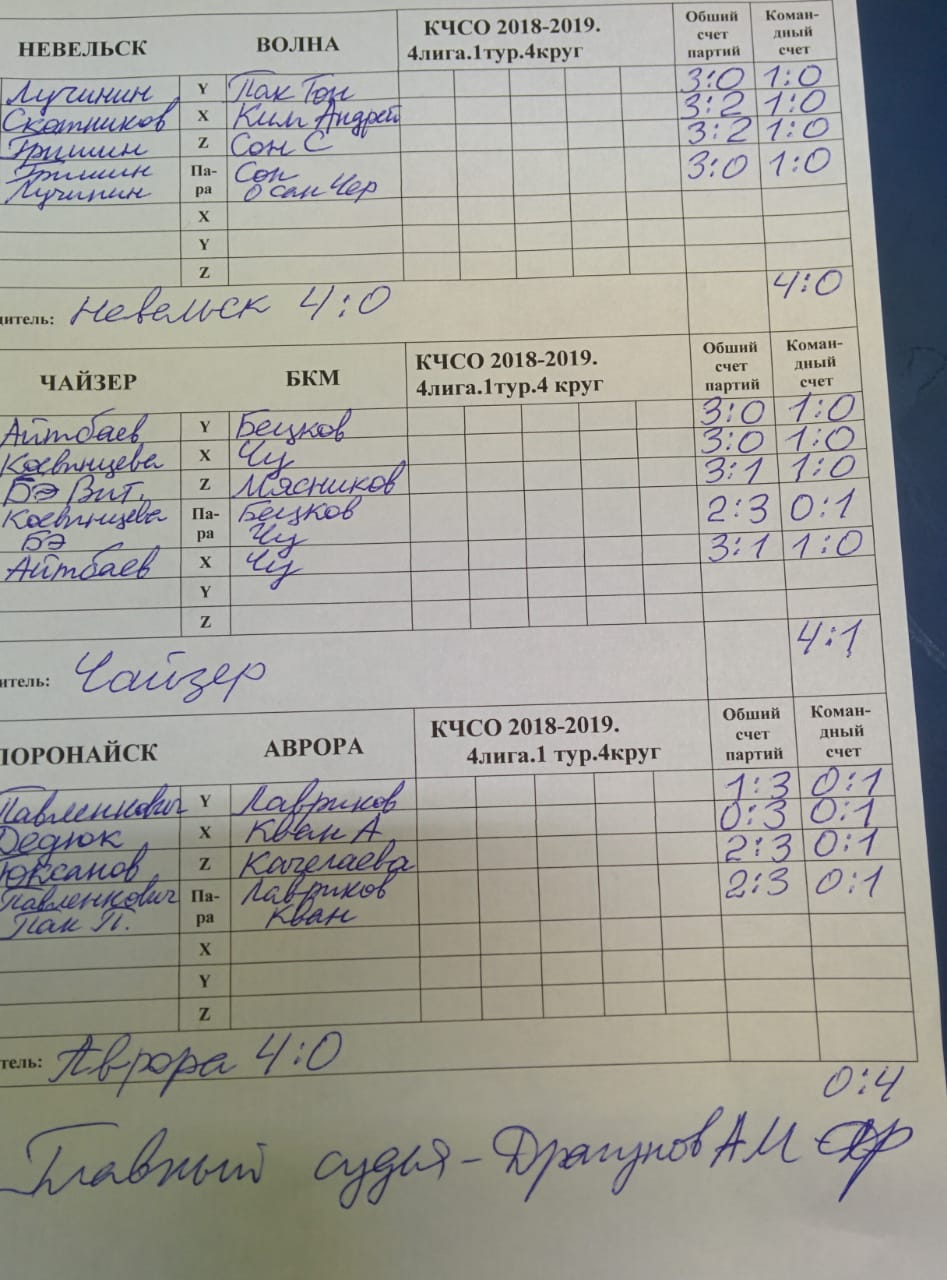 НЕВЕЛЬСК ВОЛНА КЧСО 2018-2019. 4лига.1тур.4круг Обший счет партий Коман-дный счет
Лучинин Y Пак Тон 3:0 1:0
Скотников X Ким Андрей 3:2 1:0
Гришин Z Сон С 3:2 1:0
Гришин Лучинин Па-ра Сон О сан Чер 3:0 1:0
X
Y
Z
дитель: Невельск 4:0 4:0
ЧАЙЗЕР БКМ КЧСО 2018-2019. 4лига.1тур.4 круг Обший счет партий Коман-дный счет
Айтбаев Y Бецков 3:0 1:0
X Чу 3:0 1:0
БЭ Вит. Z Мясников 3:1 1:0
БЭ Па-ра Бецков Чу 2:3 0:1
Айтбаев X Чу 3:1 1:0
Y
Z
итель: Чайзер 4:1
ПОРОНАЙСК АВРОРА КЧСО 2018-2019. 4лига.1 тур.4круг Обший счет партий Коман-дный счет
Павленкович Y Лавриков 1:3 0:1
Дедюк X Кван А 0:3 0:1
Z Качелаева 2:3 0:1
Павленкович Пак П. Па-ра Лавриков Кван 2:3 0:1
X
Y
Z
тель: Аврора 4:0
0:4
Главный судья - Драгунов А М